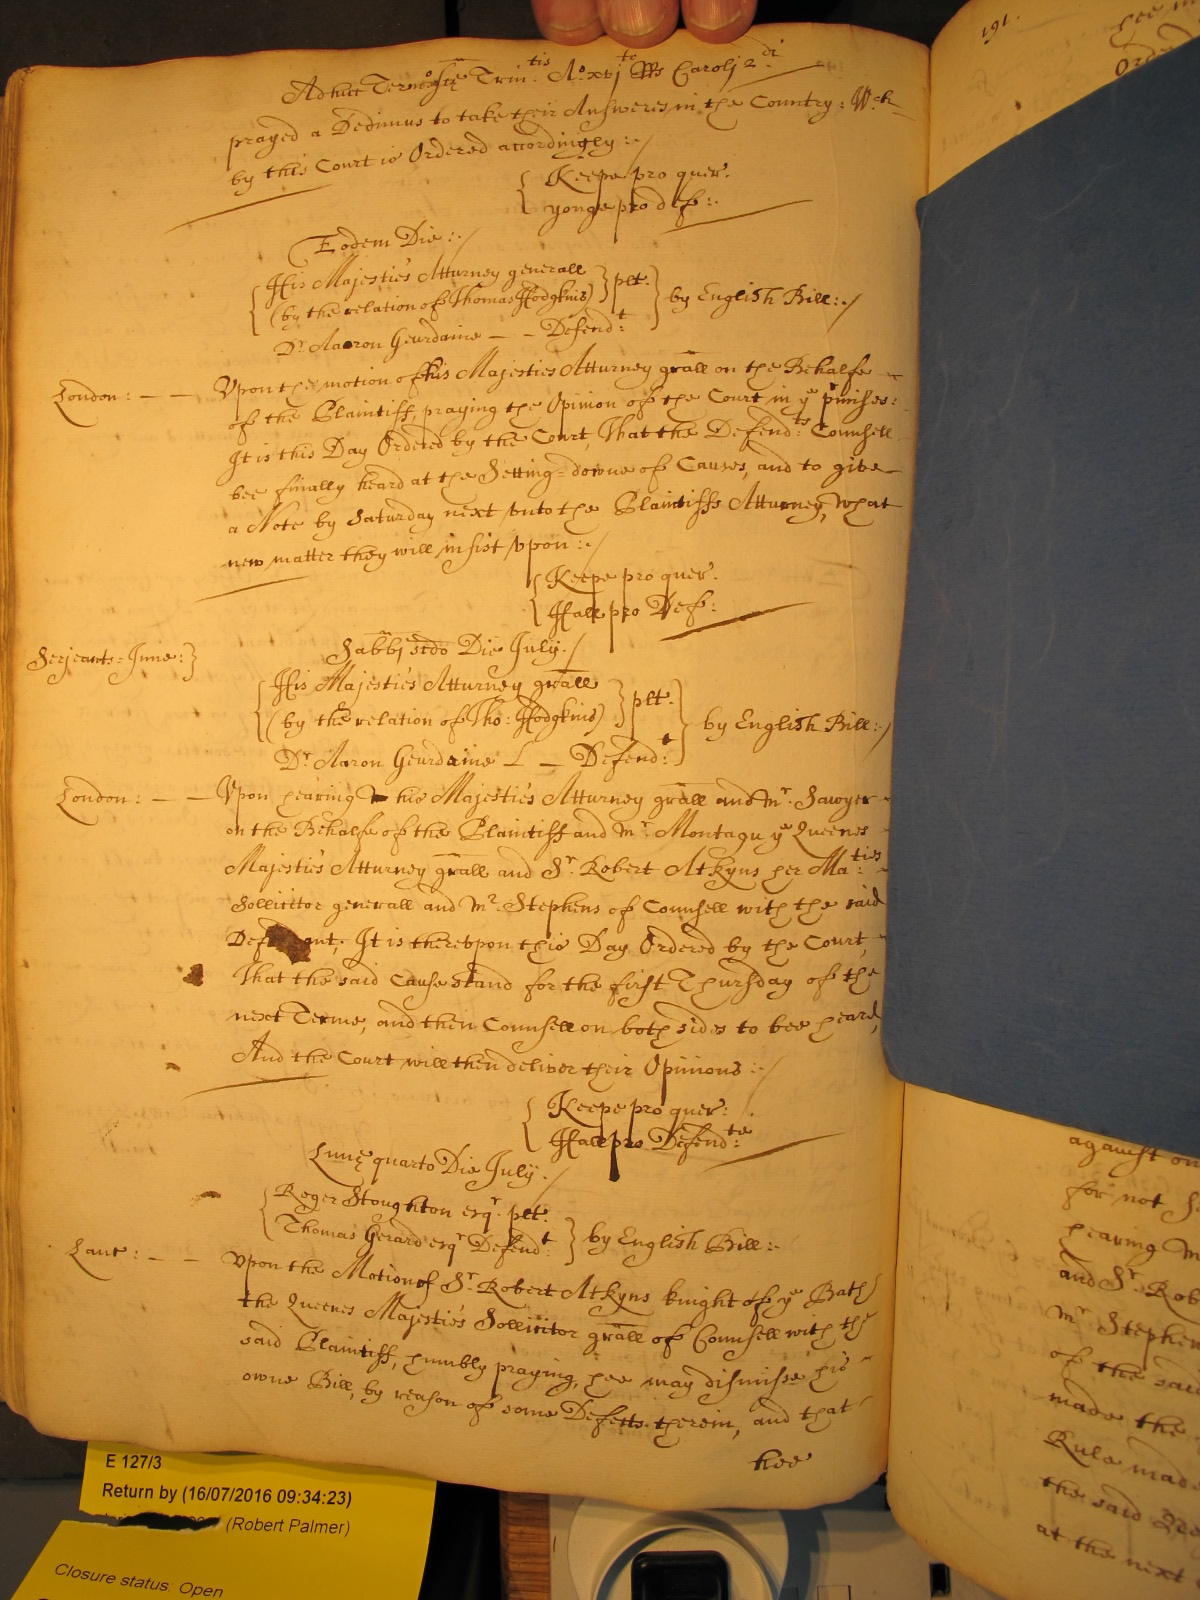 Adhuc Termo Sc̄e Trin:tis Ao xvjto Rs Carolj 2di
prayed a Dedimus to take their Answeres in the Country: Wch
by this Court is Ordered accordingly:./
{ Keepe pro quer.
yonge pro def:.
Eodem Die:./
{ His Majesties Atturney generall
(by the relation of Thomas Hodgkins) } plt. } by English Bill:./
Dr. Aaron Gourdaine — — Defendt:
London: — — Vpon the motion of his Majesties Atturney gr̄all on the Behalfe
of the Plaintiff, praying the Opinion of the Court in ye pr̄mises:
It is this Day Ordered by the Court, That the Defend:ts Counsell
bee finally heard at the Setting=downe of Causes, and to give
a Note by Saturday next vnto the Plaintiffs Atturney, what
new matter they will insist vpon:./
{ Keepe pro quer.
Hall pro Def:
Serjeants=Inne:} Sabbj scdo Die July./
{ His Majesties Atturney gr̄all
(by the relation of Tho: Hodgkins) } plt. } by English Bill:./
Dr. Aaron Gourdaine — — Defend:t
London: — — Vpon hearing his Majesties Atturney gr̄all and Mr. Sawyer
on the Behalfe of the Plaintiff and Mr. Montagu ye Queenes
Majesties Atturney gr̄all and Sr. Robert Atkyns her Ma:ties
Sollicitor generall and Mr. Stephens of Counsell with the said
Defendant; It is therevpon this Day Ordered by the Court,
That the said Cause stand for the first Thursday of the
next Terme, and then Counsell on both sides to bee heard,
And the Court will then deliver their Opinions:./
{ Keepe pro quer:
Hall pro Defend:te
Lunę quarto Die July./
{ Roger Stoughton esqr. plt.
Thomas Gerard esqr Defend:t } by English Bill:.
Lanc: — — Vpon the Motion of Sr. Robert Atkyns knight of ye Bath
the Queenes Majesties Sollicitor gr̄all of Counsell with the
said Plaintiff, humbly praying, hee may dismisse his
owne Bill, by reason of some Defects therein, and that
hee
191.
Orde
against on
for not
hearing M
and Sr. Rob
Mr. Stephen
of the said
made the
Rule made
the said
at the next
E 127/3
Return by (16/07/2016 09:34:23)
(Robert Palmer)
Closure status: Open